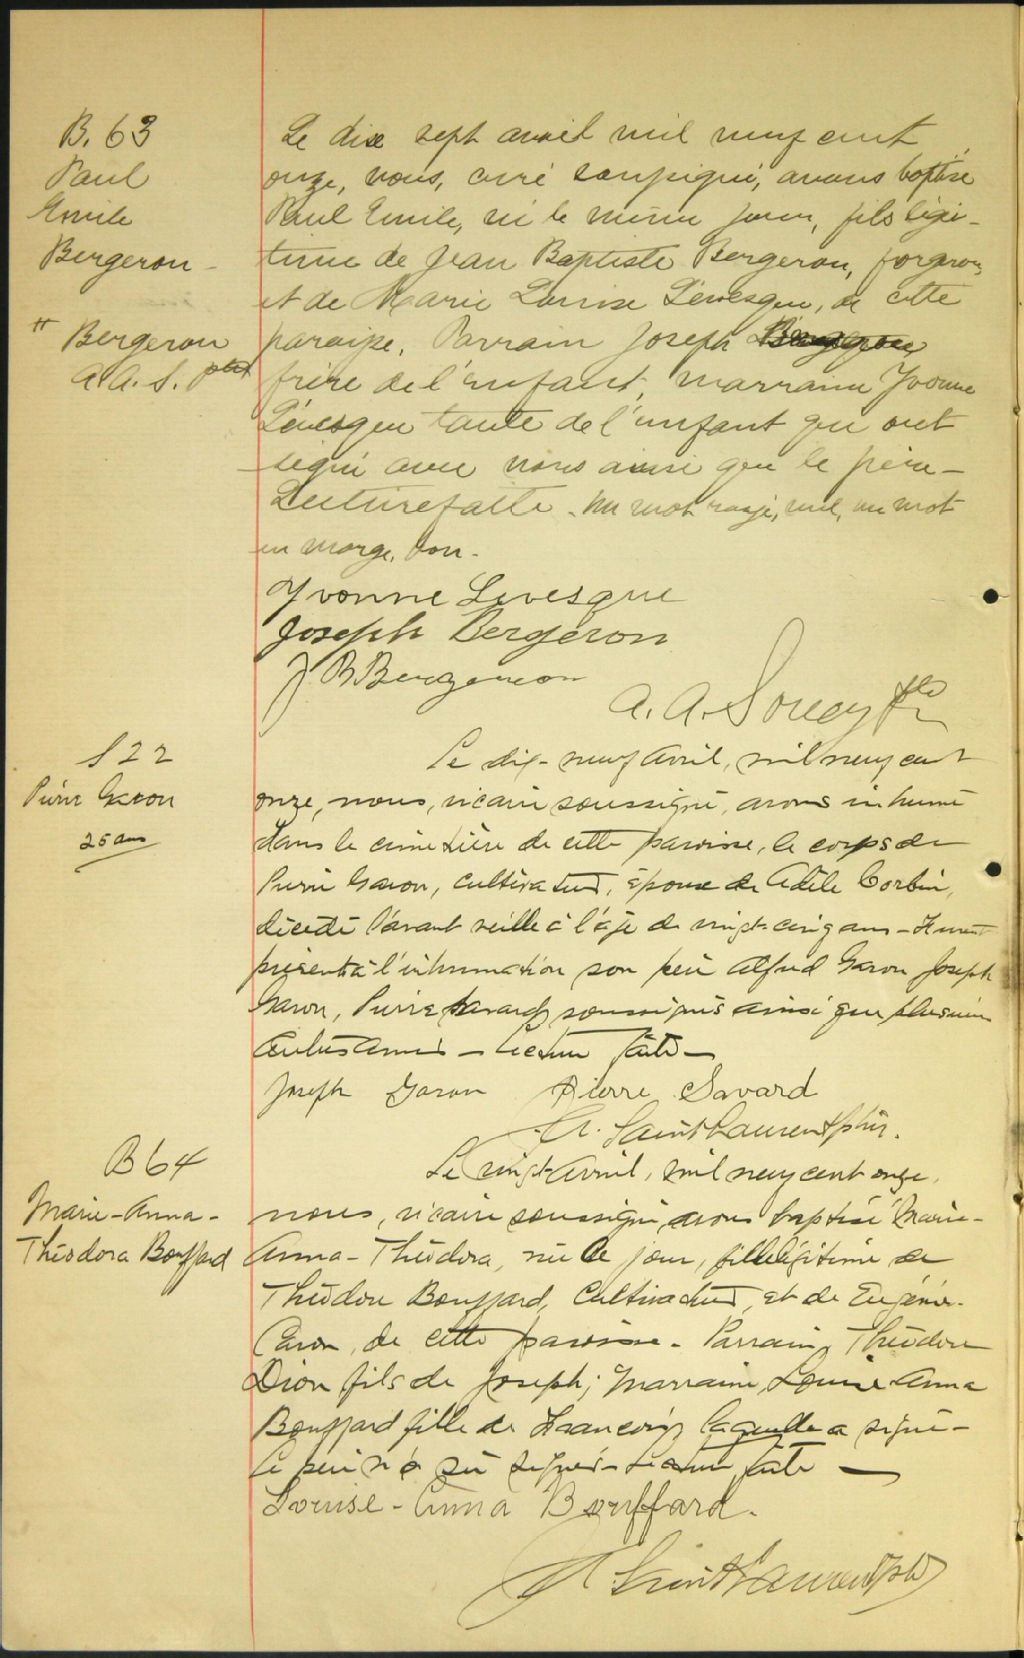 B. 63
Paul
Emile
Bergeron
" Bergeron
A. A. S. ptre
Le dix sept avril mil neuf cent
onze, nous, curé soussigné, avons baptisé
Paul Emile, né le même jour, fils légi-
time de Jean Baptiste Bergeron, forgeron,
et de Marie Louise Lévesque, de cette
paroisse. Parrain Joseph
frère de l'enfant, marraine Yvonne
Lévesque tante de l'enfant qui ont
signé avec nous ainsi que le père-
Lecture faite. Un mot rayé, nul, un mot
en marge, bon.
Yvonne Levesque
Joseph Bergeron
J B Bergeron
A. A. Soucy Ptre
S 22
Pierre Garon
25 ans
Le dix-neuf Avril, mil neuf cent
onze, nous, vicaire soussigné, avons inhumé
dans le cimetière de cette paroisse, le corps de
Pierre Garon, cultivateur, époux de Adèle Corbin,
décédé l'avant veille à l'âge de vingt-cinq ans - Furent
présents à l'inhumation son père Alfred Garon Joseph
Garon, Pierre Savard soussignés ainsi que plusieurs
autres amis - Lecture faite -
Joseph Garon Pierre Savard
Saint Laurent ptre.
B 64
Marie-Anna-
Théodora Bouffard
Le vingt Avril, mil neuf cent onze,
nous, vicaire soussigné, avons baptisé Marie-
Anna-Théodora, née ce jour, fille légitime de
Théodore Bouffard, Cultivateur, et de Eugénie
Caron, de cette paroisse - Parrain, Théodore
Dion fils de Joseph; Marraine Louise Anna
Bouffard fille de François laquelle a signé -
le père n'a su signer - Lecture faite -
Louise-Anna Bouffard.
Saint Laurent Ptre